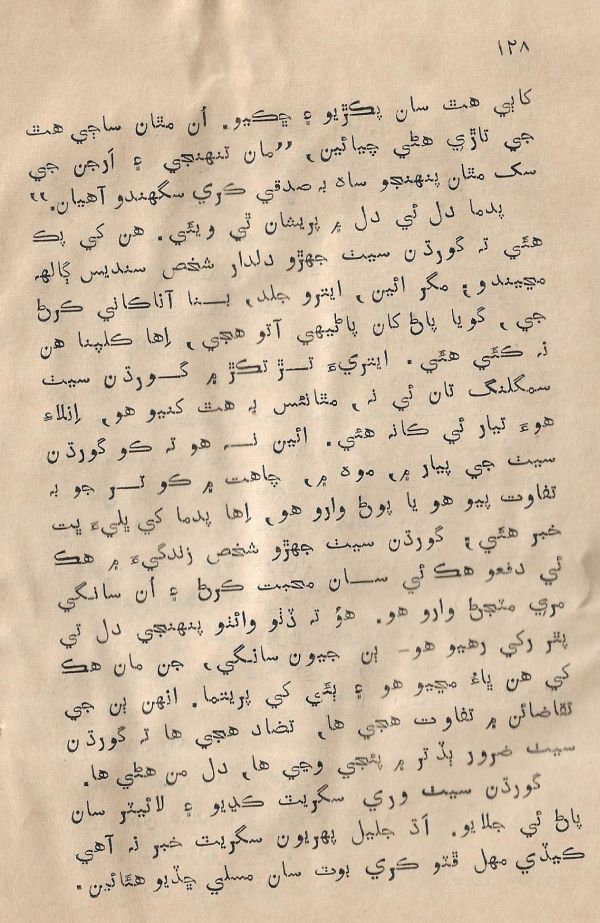 ١٢٨
کاٻي هٿ سان پڪڙيو ۽ ڇڪيو. اُن مٿان ساڄي هٿ
جي تاڙي هڻي چيائين, ”مان تنهنجي ۽ اَرجن جي
سک مٿان پنهنجو ساھ بہ صدقي ڪري سگهندو آهيان.“
پدما دل ئي دل ۾ پريشان ٿي ويئي. هن کي پڪ
هئي تہ گورڌن سيٺ جهڙو دلدار شخص سنديس ڳالهہ
مڃيندو؛ مگر ائين, ايترو جلد, بنا آناڪاني ڪرڻ
جي, گويا پاڻ کان پاڻيهي آتو هجي, اِها ڪلپنا هن
نہ ڪئي هئي. ايتريءَ تڙ تڪڙ ۾ گورڌن سيٺ
سمگلنگ تان ئي نہ, مٿانئس بہ هٿ کنيو هو, اِنلاءِ
هوءَ تيار ئي ڪانہ هئي. ائين نہ هو تہ ڪو گورڌن
سيٺ جي پيار ۾, موھ ۾, چاهت ۾ ڪو تر جو بہ
تفاوت پيو هو يا پوڻ وارو هو, اِها پدما کي ڀليءَ ڀت
خبر هئي؛ گورڌن سيٺ جهڙو شخص زندگيءَ ۾ هڪ
ئي دفعو هڪ ئي سان محبت ڪرڻ ۽ اُن سانگي
مري مٽجڻ وارو هو. هوُ تہ ڏٺو وائٺو پنهنجي دل تي
پٿر رکي رهيو هو- ٻن جيون سانگي, جن مان هڪ
کي هن ڀاءُ مڃيو هو ۽ ٻئي کي پريتما. انهن ٻن جي
تقاضائن ۾ تفاوت هجي ها, تضاد هجي ها تہ گورڌن
سيٺ ضرور ٻڏتر ۾ پئجي وڃي ها, دل من هڻي ها.
گورڌن سيٺ وري سگريٽ ڪڍيو ۽ لائيٽر سان
پاڻ ئي جلايو. اَڌ جليل پهريون سگريٽ خبر نہ آهي
ڪيڏي مهل ڦٽو ڪري بوٽ سان مسلي ڇڏيو هئائين.